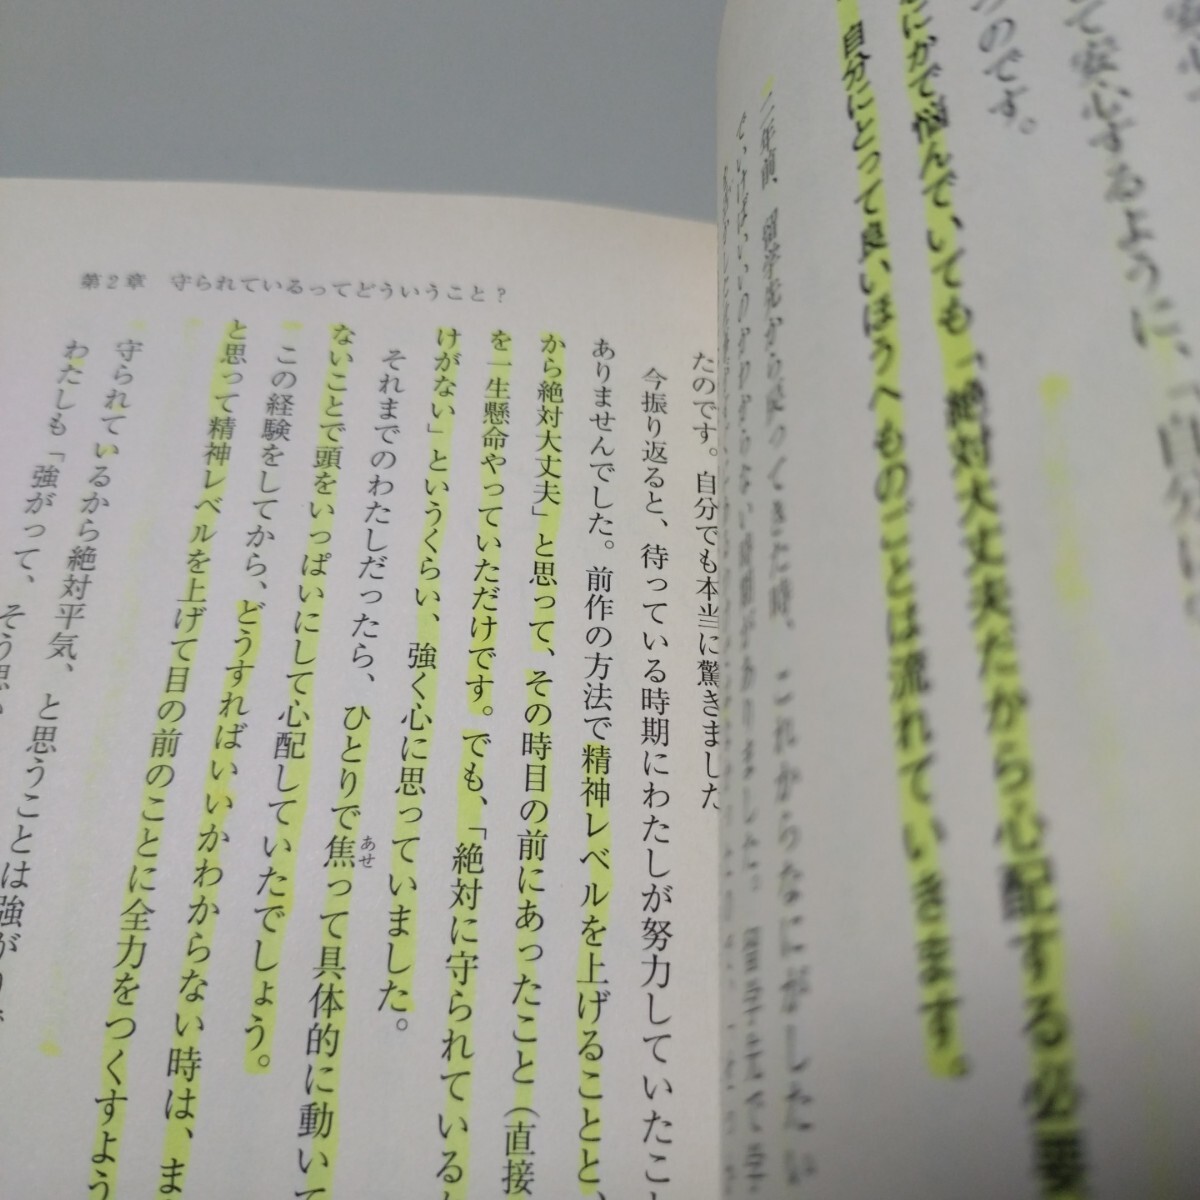 て安心するように、「自分に
のです。
にかで悩んでいても「絶対大丈夫だから心配する必要
自分にとって良いほうへものごとは流れていきます。
二年前、留学先から戻ってきた時、これからなにがしたい
第2章 守られているってどういうこと?
たのです。自分でも本当に驚きました
今振り返ると、待っている時期にわたしが努力していたこ
ありませんでした。前作の方法で精神レベルを上げることと、
から絶対大丈夫」と思って、その時目の前にあったこと(直接
を一生懸命やっていただけです。でも、「絶対に守られている
けがない」というくらい、強く心に思っていました。
それまでのわたしだったら、ひとりで焦って具体的に動いて
あせ
ないことで頭をいっぱいにして心配していたでしょう。
この経験をしてから、どうすればいいかわからない時は、ま
と思って精神レベルを上げて目の前のことに全力をつくすよう
守られているから絶対平気、と思うことは強がり
わたしも「強がって、そう思